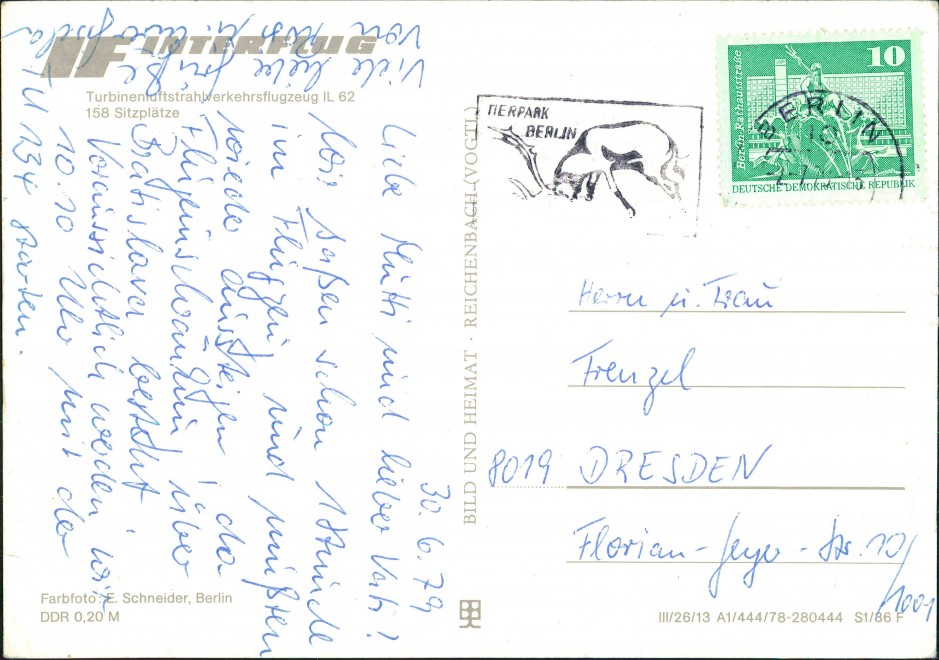 INTERFLUG
Turbinenluftstrahlverkehrsflugzeug IL 62
158 Sitzplätze
30.6.79
Liebe Mutti und lieber Vati!
Wir saßen schon 1 Stunde
im Flugzeug und mußten
wieder aussteigen, da
Flugeinschränkung über
Bratislava besteht
Voraussichtlich werden wir
10.10 Uhr mit der
TU 134 starten.
Viele liebe Grüße
von
Farbfoto: E. Schneider, Berlin
DDR 0,20 M
BILD UND HEIMAT · REICHENBACH (VOGTL)
TIERPARK
BERLIN
10
Berlin, Rathausstraße
DEUTSCHE DEMOKRATISCHE REPUBLIK
BERLIN
Herrn u. Frau
Frenzel
8019 DRESDEN
Florian-Geyer-Str. 10/
1001
III/26/13 A1/444/78-280444 S1/86 F